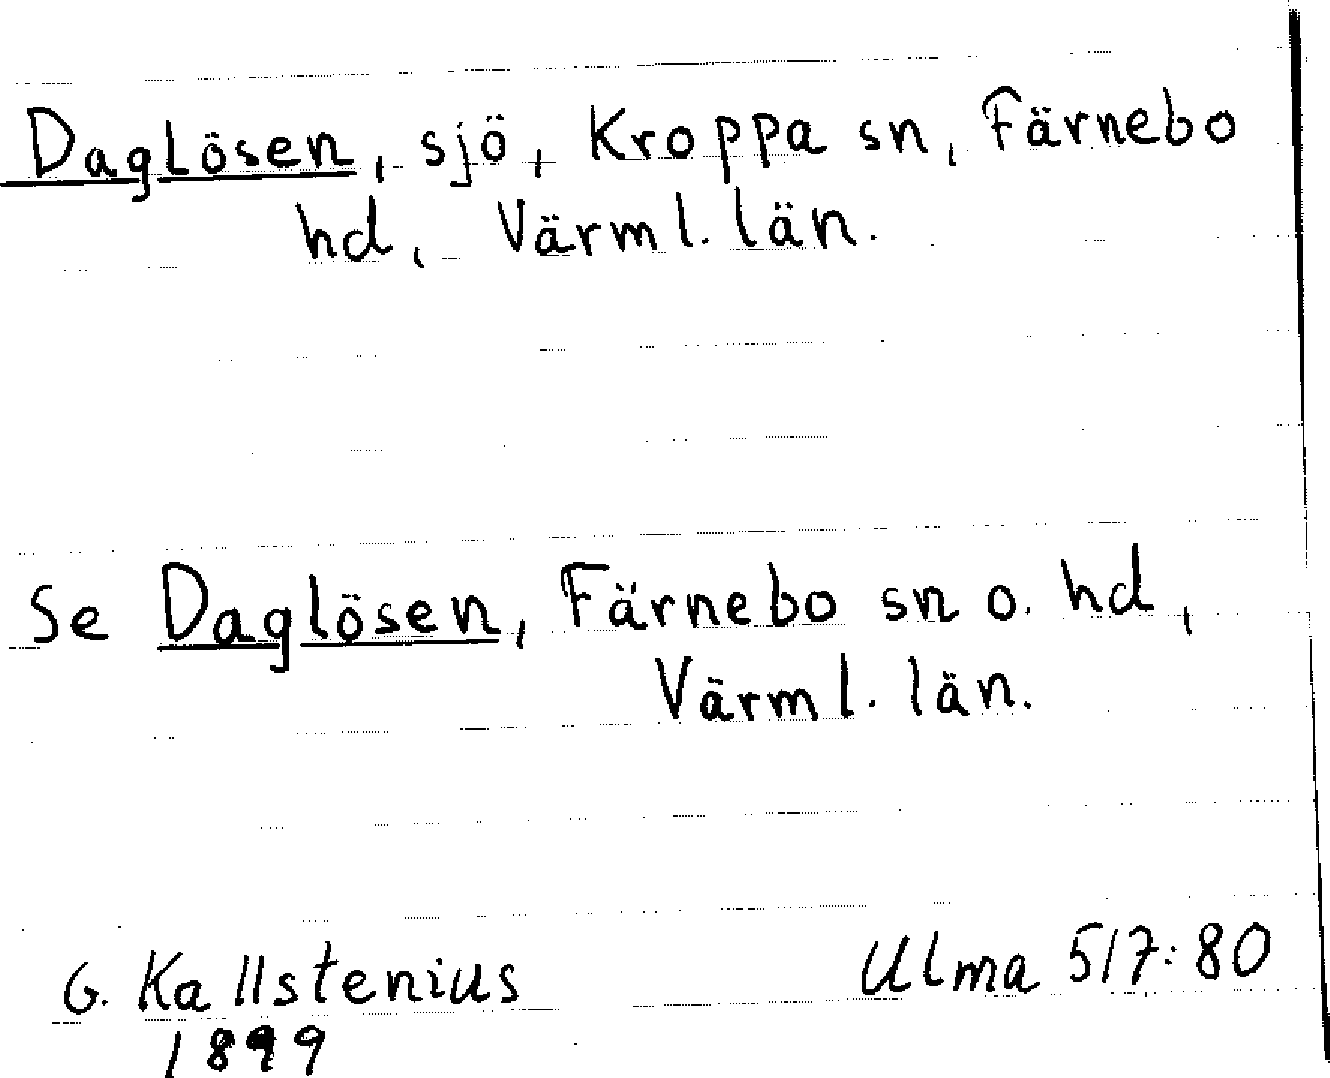 Daglösen, sjö, Kroppa sn, Färnebo
hd, Värml. län.
Se Daglösen, Färnebo sn o. hd,
Värml. län.
G. Kallstenius Ulma 517:80
1899